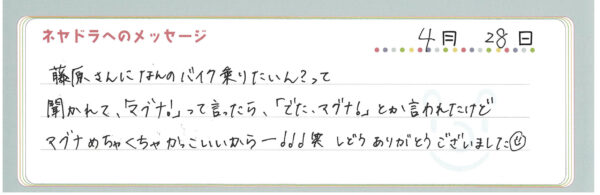 ネヤドラへのメッセージ
4月 28日
藤原さんになんのバイク乗りたいん？って
聞かれて、「マグナ！」って言ったら、「でた、マグナ！」とか言われたけど
マグナめちゃくちゃかっこいいからー！！！笑 しどう ありがとうございました